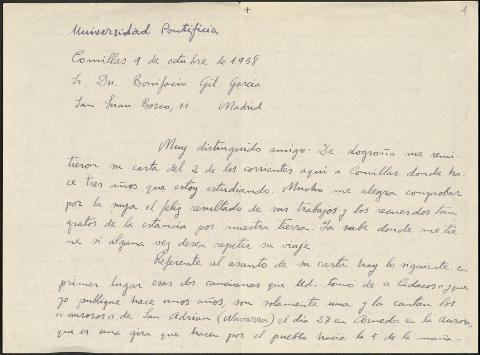 1
Universidad Pontificia
Comillas 9 de octubre de 1958
Sr. Dn. Bonifacio Gil García
San Juan Bosco, 11. Madrid
Muy distinguido amigo: De Logroño me remi-
tieron su carta del 2 de los corrientes aquí a Comillas donde ha-
ce tres años que estoy estudiando. Mucho me alegra comprobar
por la suya el feliz resultado de sus trabajos y los recuerdos tan
gratos de la estancia por nuestra tierra. Ya sabe donde me tie
ne si alguna vez desea repetir su viaje.
Referente al asunto de su carta hay lo siguiente: en
primer lugar esas dos canciones que Ud. tomó de a Cidacos y que
yo publiqué hace unos años, son solamente una y la cantan los
"auroros" de San Adrian (Navarra) el día 27 en Arnedo en la Aurora,
que es una gira que hacen por el pueblo hacia la 5 de la maña-